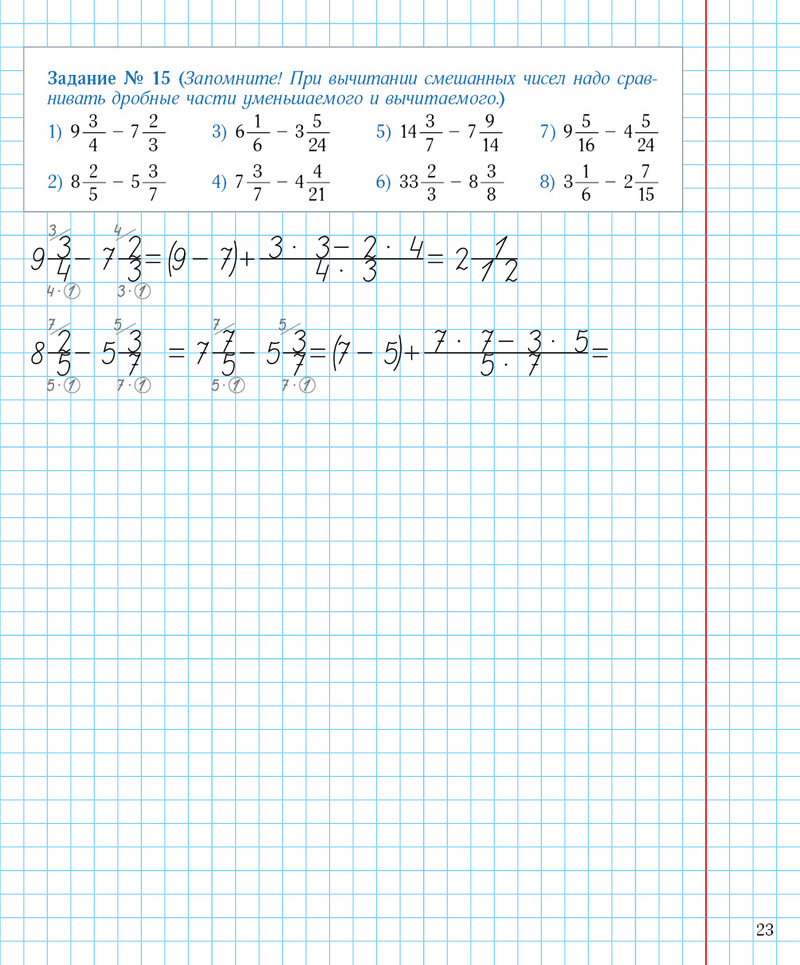 Задание № 15 (Запомните! При вычитании смешанных чисел надо срав-
нивать дробные части уменьшаемого и вычитаемого.)
1) 9 3/4 − 7 2/3 3) 6 1/6 − 3 5/24 5) 14 3/7 − 7 9/14 7) 9 5/16 − 4 5/24
2) 8 2/5 − 5 3/7 4) 7 3/7 − 4 4/21 6) 33 2/3 − 8 3/8 8) 3 1/6 − 2 7/15
3/ 4/
9 3/4 − 7 2/3 = (9 − 7) + (3 · 3 − 2 · 4)/(4 · 3) = 2 1/12
4 · ① 3 · ①
7/ 5/ 7/ 5/
8 2/5 − 5 3/7 = 7 7/5 − 5 3/7 = (7 − 5) + (7 · 7 − 3 · 5)/(5 · 7) =
5 · ① 7 · ① 5 · ① 7 · ①
23